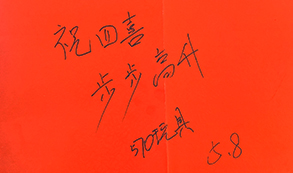 祝四喜
步步高升
570玩具
5.8